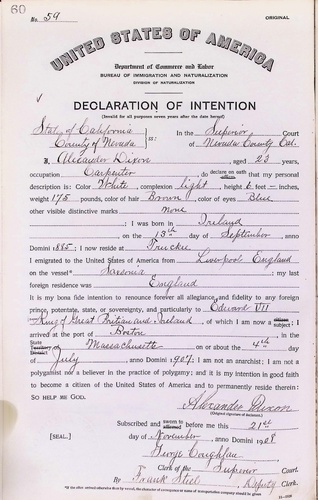 60
No. 59
ORIGINAL
UNITED STATES OF AMERICA
Department of Commerce and Labor
BUREAU OF IMMIGRATION AND NATURALIZATION
DIVISION OF NATURALIZATION
DECLARATION OF INTENTION
(Invalid for all purposes seven years after the date hereof)
State of California
County of Nevada
ss:
In the Superior Court
of Nevada County Cal.
I, Alexander Dixon, aged 23 years,
occupation Carpenter, do declare on oath that my personal
description is: Color White, complexion light, height 6 feet - inches,
weight 175 pounds, color of hair Brown, color of eyes Blue,
other visible distinctive marks none
; I was born in Ireland
, on the 13th day of September, anno
Domini 1885; I now reside at Truckee
I emigrated to the United States of America from Liverpool England
on the vessel* Saxonia; my last
foreign residence was England
It is my bona fide intention to renounce forever all allegiance and fidelity to any foreign
prince, potentate, state, or sovereignty, and particularly to Edward VII
King of Great Britian and Ireland, of which I am now a subject; I
arrived at the port of Boston, in the
State of Massachusetts on or about the 4th day
of July, anno Domini 1907; I am not an anarchist; I am not a
polygamist nor a believer in the practice of polygamy; and it is my intention in good faith
to become a citizen of the United States of America and to permanently reside therein:
SO HELP ME GOD.
Alexander Dixon
(Original signature of declarant.)
Subscribed and sworn to before me this 21st
[SEAL.] day of November, anno Domini 1908.
George Coughlan
Clerk of the Superior Court.
By Frank Steel, Deputy Clerk.